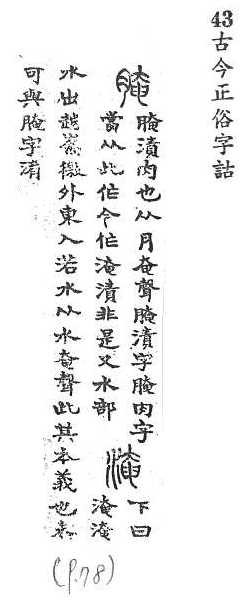 43 古今正俗字詁
腌 腌漬肉也从月奄聲腌漬字腌肉字
當从此作今作淹漬非是又水部 淹 下曰
淹淹
水出越嶲徼外東入若水从水奄聲此其本義也未
可與腌字淆
(p.78)